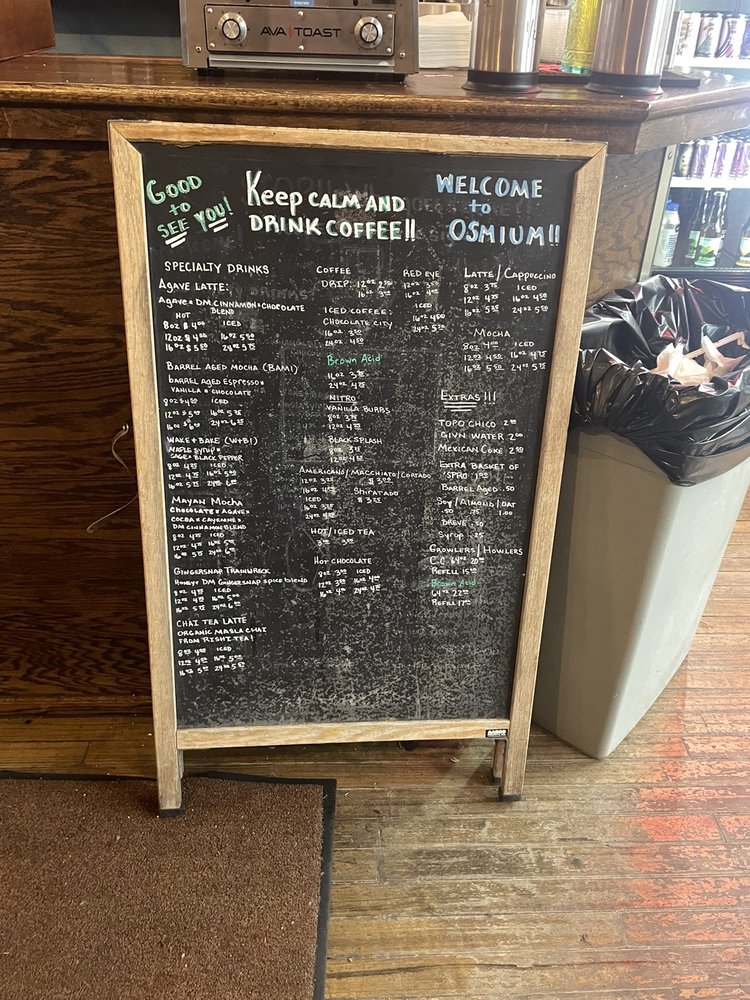 AVATOAST
GOOD
to
SEE YOU!
Keep CALM AND
DRINK COFFEE!!
WELCOME
to
OSMIUM!!
SPECIALTY DRINKS
AGAVE LATTE:
AGAVE + DM CINNAMON + CHOCOLATE
BLEND
HOT
8oz $4.00 ICED
12oz $4.50 16oz $5.00
16oz $5.50 24oz 5.75
BARREL AGED MOCHA (BAM!)
BARREL AGED ESPRESSO +
VANILLA + CHOCOLATE
ICED
WAKE + BAKE (W+B!)
MAPLE SYRUP +
SAGE + BLACK PEPPER
8oz 4.25 ICED
12oz 4.75 16oz 5.00
MAYAN MOCHA
CHOCOLATE + AGAVE +
COCOA + CAYENNE +
DM CINNAMON BLEND
8oz 4.25 ICED
GINGERSNAP TRAINWRECK
HONEY + DM GINGERSNAP SPICE BLEND
8oz 4.25 ICED
12oz 4.75 16oz 5.00
CHAI TEA LATTE
ORGANIC MASLA CHAI
FROM RISHI TEA!
8oz 4.00 ICED
12oz 4.50 16oz 5.00
COFFEE
DRIP: 12oz 2.50
16oz 3.00
ICED COFFEE:
CHOCOLATE CITY
16oz 3.50
24oz 4.50
Brown Acid
16oz 3.75
24oz 4.75
NITRO
VANILLA BURBS
8oz 3.75
12oz 4.75
BLACK SPLASH
8oz 3.75
12oz 4.50
AMERICANO/MACCHIATO/CORTADO
12oz 3.25 $3.50
ICED
SHIFATADO
HOT/ICED TEA
HOT CHOCOLATE
8oz 3.00 ICED
12oz 3.50 16oz 4.00
RED EYE
ICED
16oz 4.50
24oz 5.25
LATTE/CAPPUCCINO
8oz 3.75 ICED
12oz 4.25 16oz 4.50
16oz 5.25 24oz 5.50
MOCHA
8oz 4.00 ICED
12oz 4.50 16oz 4.75
16oz 5.50 24oz 5.75
EXTRAS!!!
TOPO CHICO 2.50
GIVN WATER 2.00
MEXICAN COKE 2.50
EXTRA BASKET OF
'SPRO 1.00
BARREL AGED .50
SOY/ALMOND/OAT
.50 .75 1.00
BREVE .50
SYRUP .25
GROWLERS/HOWLERS
C.C. 64oz 20.00
REFILL 15.00
Brown Acid
64oz 22.00
REFILL 17.00